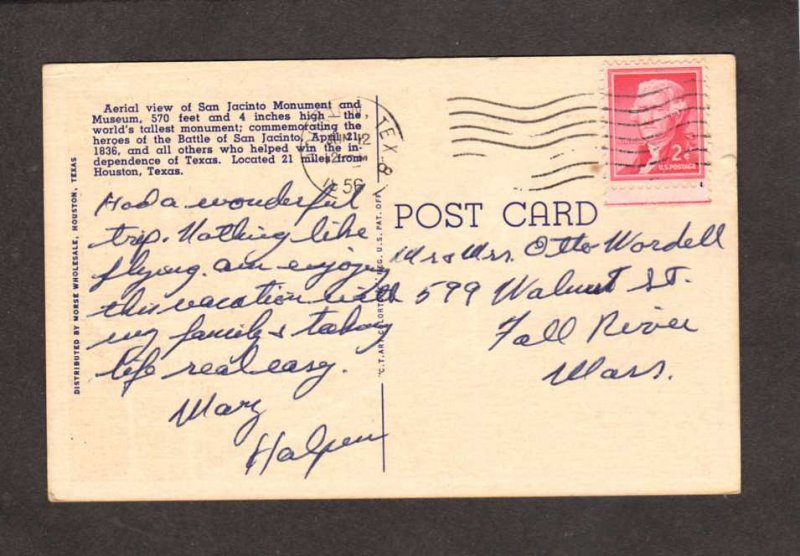 Aerial view of San Jacinto Monument and
Museum, 570 feet and 4 inches high — the
world's tallest monument; commemorating the
heroes of the Battle of San Jacinto, April 21,
1836, and all others who helped win the in-
dependence of Texas. Located 21 miles from
Houston, Texas.
DISTRIBUTED BY MORSE WHOLESALE, HOUSTON, TEXAS
Had a wonderful
trip. Nothing like
flying. am enjoying
this vacation with
my family & taking
life real easy.
Mary
Halpen
TEX. 8
12
56
REG. U.S. PAT. OFF.
C.T. ART-COLORTONE
POST CARD
2¢
U.S. POSTAGE
Mr & Mrs. Otto Wordell
599 Walnut St.
Fall River
Mass.